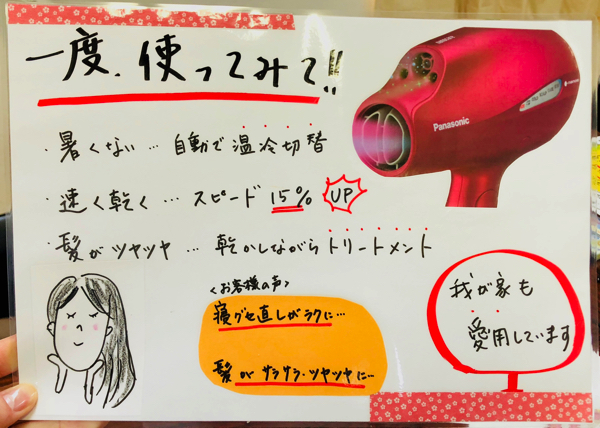 一度、使ってみて!!
・暑くない… 自動で温冷切替
・速く乾く… スピード 15% UP
・髪がツヤツヤ… 乾かしながらトリートメント
Panasonic
<お客様の声>
寝グセ直しがラクに…
髪がサラサラ・ツヤツヤに…
我が家も
愛用しています